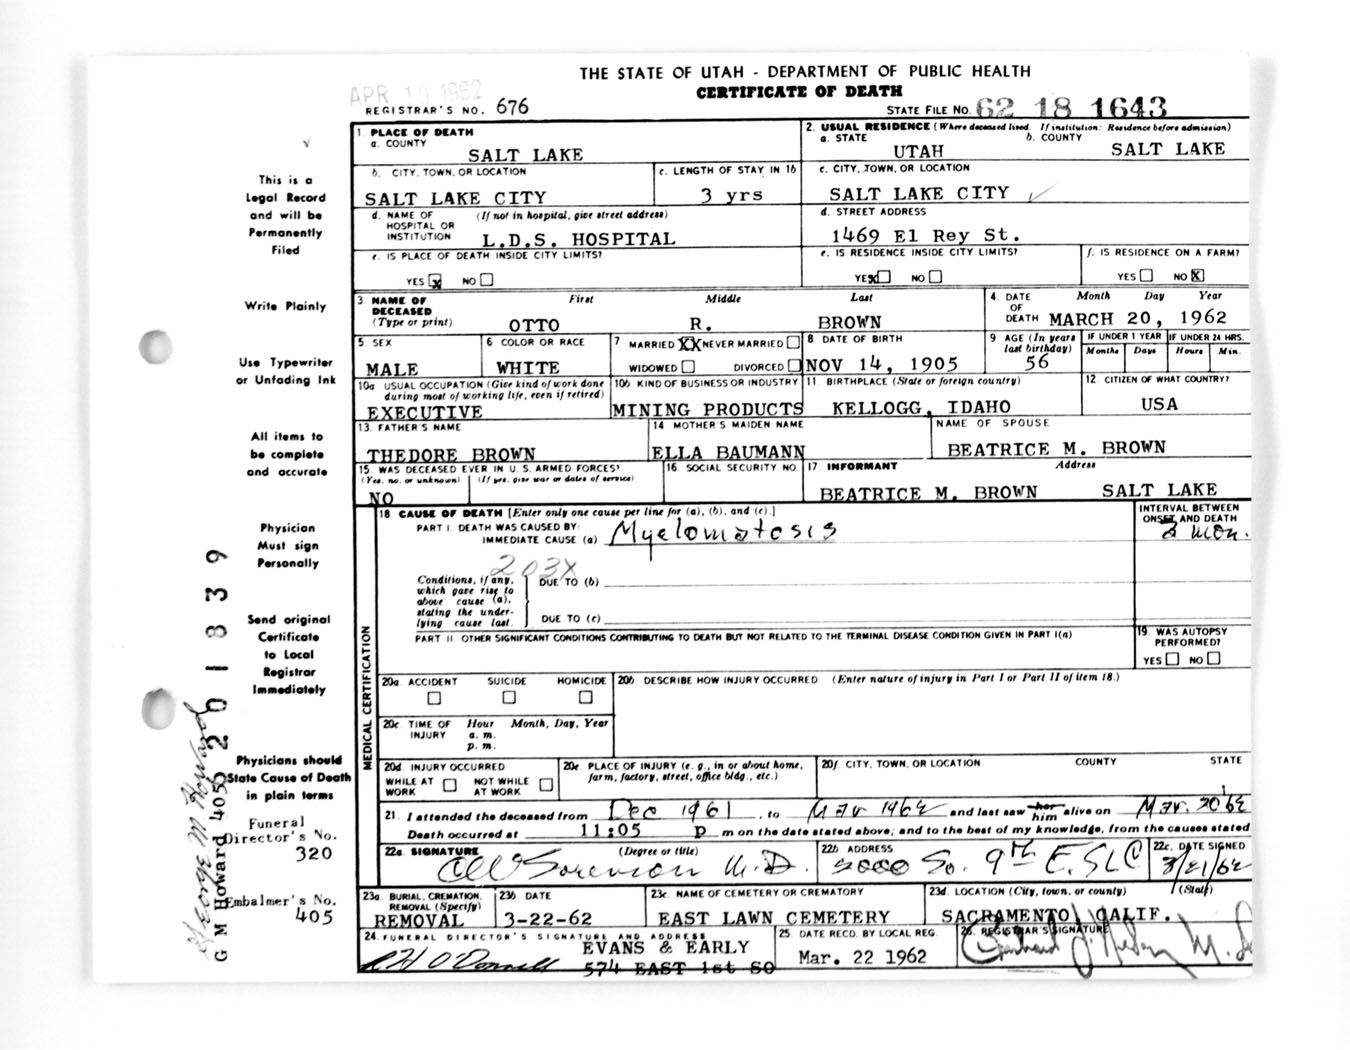 THE STATE OF UTAH - DEPARTMENT OF PUBLIC HEALTH
CERTIFICATE OF DEATH
APR 1962
REGISTRAR'S NO. 676
STATE FILE NO. 62 18 1643
1. PLACE OF DEATH
a. COUNTY
SALT LAKE
2. USUAL RESIDENCE (Where deceased lived. If institution: Residence before admission)
a. STATE b. COUNTY
UTAH SALT LAKE
b. CITY, TOWN, OR LOCATION
SALT LAKE CITY
c. LENGTH OF STAY IN 1b
3 yrs
c. CITY, TOWN, OR LOCATION
SALT LAKE CITY
d. NAME OF (If not in hospital, give street address)
HOSPITAL OR
INSTITUTION L.D.S. HOSPITAL
d. STREET ADDRESS
1469 El Rey St.
e. IS PLACE OF DEATH INSIDE CITY LIMITS?
YES X NO
e. IS RESIDENCE INSIDE CITY LIMITS?
YES X NO
f. IS RESIDENCE ON A FARM?
YES NO X
3 NAME OF DECEASED (Type or print)
First Middle Last
OTTO R. BROWN
4. DATE OF DEATH
Month Day Year
MARCH 20, 1962
5 SEX
MALE
6 COLOR OR RACE
WHITE
7 MARRIED XX NEVER MARRIED
WIDOWED DIVORCED
8 DATE OF BIRTH
NOV 14, 1905
9 AGE (In years last birthday)
56
IF UNDER 1 YEAR
Months Days
IF UNDER 24 HRS.
Hours Min.
10a USUAL OCCUPATION (Give kind of work done
during most of working life, even if retired)
EXECUTIVE
10b KIND OF BUSINESS OR INDUSTRY
MINING PRODUCTS
11. BIRTHPLACE (State or foreign country)
KELLOGG, IDAHO
12 CITIZEN OF WHAT COUNTRY?
USA
13. FATHER'S NAME
THEDORE BROWN
14 MOTHER'S MAIDEN NAME
ELLA BAUMANN
NAME OF SPOUSE
BEATRICE M. BROWN
15. WAS DECEASED EVER IN U.S. ARMED FORCES?
(Yes, no, or unknown) (If yes, give war or dates of service)
NO
16 SOCIAL SECURITY NO.
17 INFORMANT Address
BEATRICE M. BROWN SALT LAKE
18 CAUSE OF DEATH [Enter only one cause per line for (a), (b), and (c).]
PART I. DEATH WAS CAUSED BY:
IMMEDIATE CAUSE (a) Myelomatosis
INTERVAL BETWEEN
ONSET AND DEATH
mon.
203X
Conditions, if any,
which gave rise to
above cause (a),
stating the under-
lying cause last.
DUE TO (b)
DUE TO (c)
PART II. OTHER SIGNIFICANT CONDITIONS CONTRIBUTING TO DEATH BUT NOT RELATED TO THE TERMINAL DISEASE CONDITION GIVEN IN PART I(a)
19. WAS AUTOPSY
PERFORMED?
YES NO
MEDICAL CERTIFICATION
20a. ACCIDENT SUICIDE HOMICIDE
20b. DESCRIBE HOW INJURY OCCURRED (Enter nature of injury in Part I or Part II of item 18.)
20c. TIME OF INJURY Hour Month, Day, Year
a. m.
p. m.
20d. INJURY OCCURRED
WHILE AT WORK NOT WHILE AT WORK
20e. PLACE OF INJURY (e. g., in or about home,
farm, factory, street, office bldg., etc.)
20f. CITY, TOWN, OR LOCATION COUNTY STATE
21. I attended the deceased from Dec 1961, to Mar 1962 and last saw her him alive on Mar. 20 62
Death occurred at 11:05 p m on the date stated above; and to the best of my knowledge, from the causes stated
22a. SIGNATURE (Degree or title)
Sorenson M.D.
22b. ADDRESS
So. 9th E. SLC
22c. DATE SIGNED
3/21/62
23a. BURIAL, CREMATION,
REMOVAL (Specify)
REMOVAL
23b. DATE
3-22-62
23c. NAME OF CEMETERY OR CREMATORY
EAST LAWN CEMETERY
23d. LOCATION (City, town, or county) (State)
SACRAMENTO, CALIF.
24. FUNERAL DIRECTOR'S SIGNATURE AND ADDRESS
R H O'Donnell
EVANS & EARLY
574 EAST 1st SO
25. DATE RECD. BY LOCAL REG.
Mar. 22 1962
26. REGISTRAR'S SIGNATURE
This is a
Legal Record
and will be
Permanently
Filed
Write Plainly
Use Typewriter
or Unfading Ink
All items to
be complete
and accurate
Physician
Must sign
Personally
Send original
Certificate
to Local
Registrar
Immediately
Physicians should
State Cause of Death
in plain terms
Funeral
Director's No.
320
Embalmer's No.
405
George M Howard
G M Howard 405
6201839